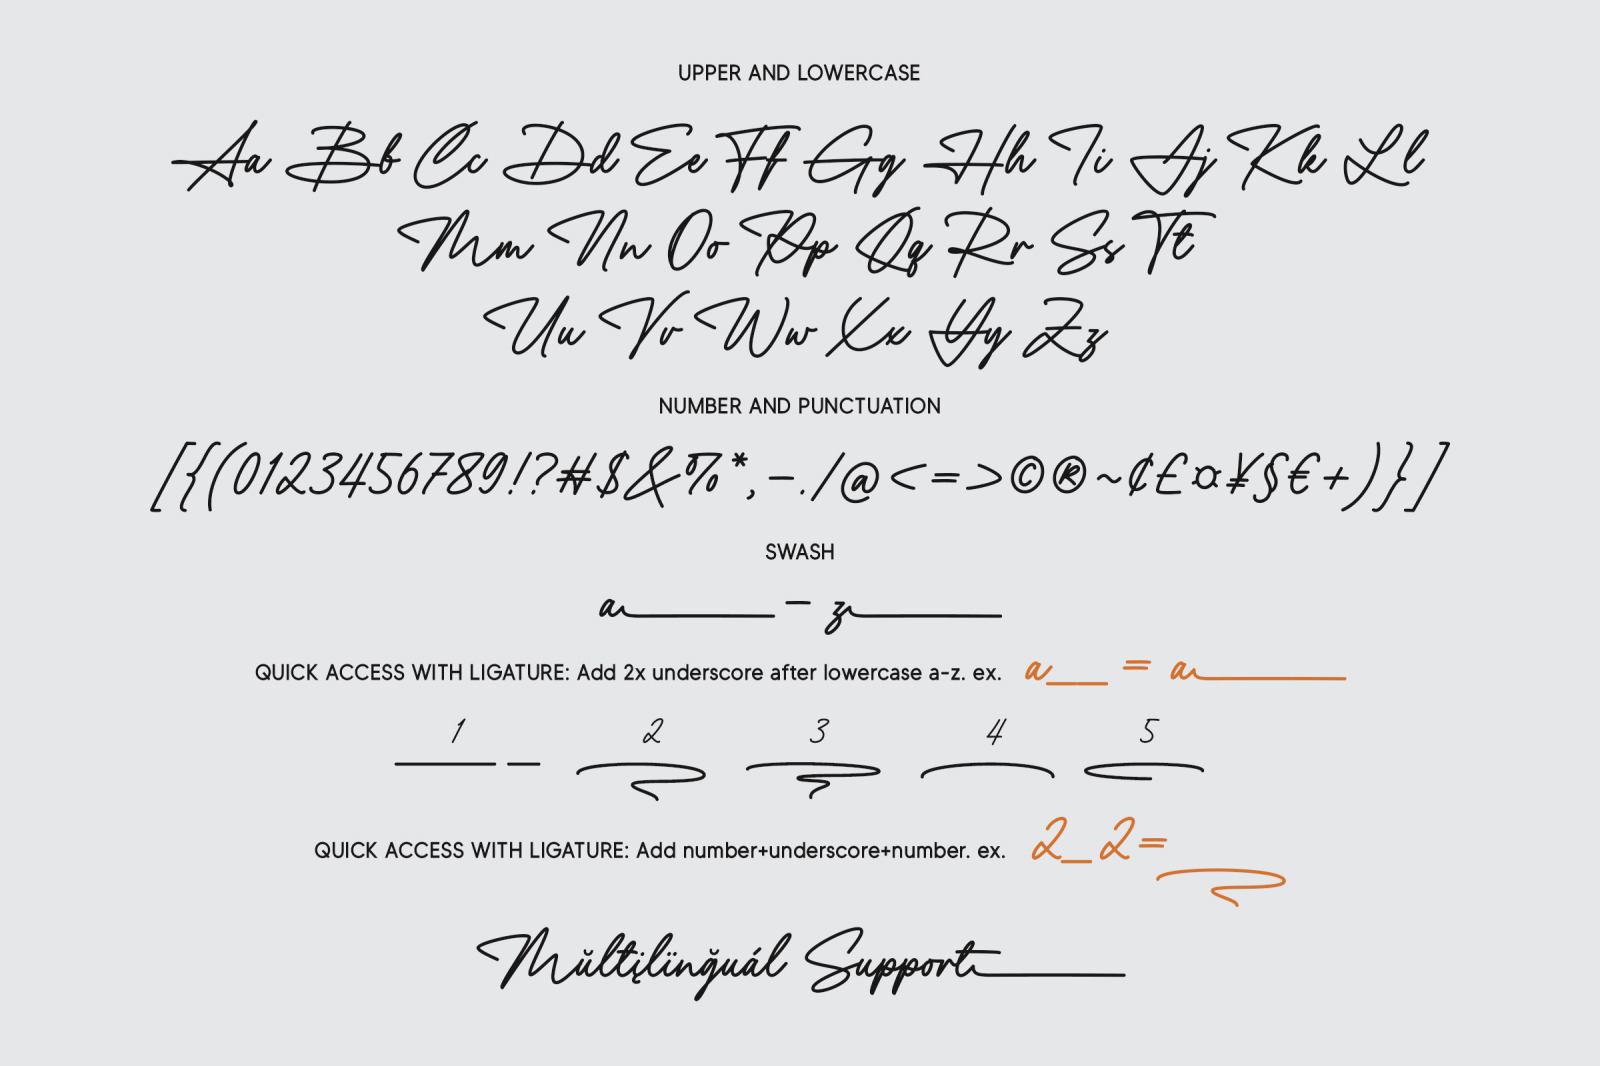 UPPER AND LOWERCASE
Aa Bb Cc Dd Ee Ff Gg Hh Ii Jj Kk Ll
Mm Nn Oo Pp Qq Rr Ss Tt
Uu Vv Ww Xx Yy Zz
NUMBER AND PUNCTUATION
[{(0123456789!?#$&%*,-./@<=>©®~¢£¤¥§€+)}]
SWASH
a__ - z__
QUICK ACCESS WITH LIGATURE: Add 2x underscore after lowercase a-z. ex. a__ = a__
1 2 3 4 5
QUICK ACCESS WITH LIGATURE: Add number+underscore+number. ex. 2_2=
Mŭltįlïnğuál Support